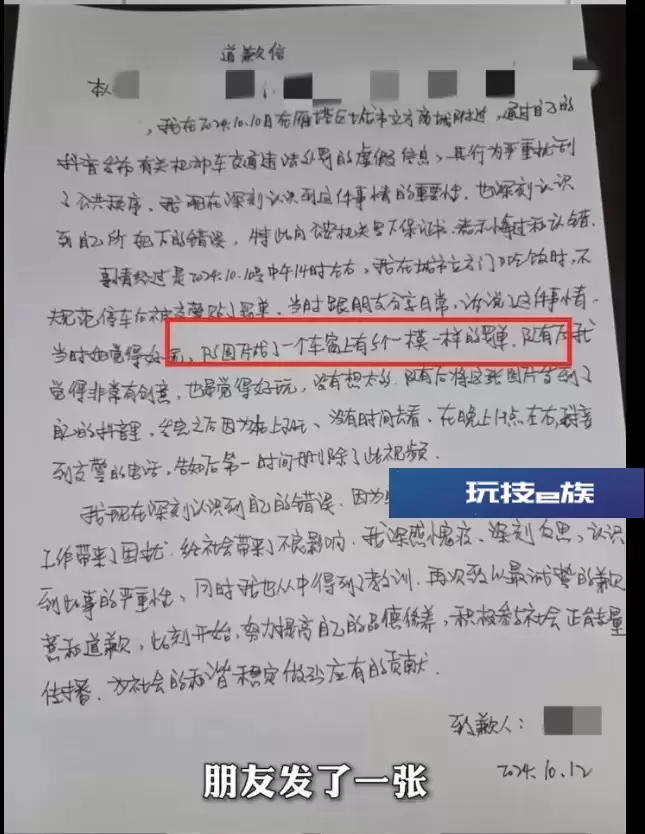 道歉信
本
,我在2024.10.10日在雁塔区城市立方商城附近,通过自己的
抖音发布有关机动车交通违法处罚的虚假信息、其行为严重扰乱到
了公共秩序。我现在深刻认识到这件事情的重要性,也深刻认识
到自己所犯下的错误,特此向公安机关写下保证书.表示悔过和认错.
事情经过是2024.10.10号中午14时左右,我在城市立方门口吃饭时,不
规范停车后被交警贴了罚单.当时跟朋友分享日常,诉说了这件事情.
当时她觉得好,PS图片搞了一个车窗上有5个一模一样的罚单.
觉得非常有创意,也是觉得好玩,没有想太多.随后将这张图片发到了
自己的抖音里,发完之后因为,没有时间去看、在晚上点左右,接
到交警的电话,告知后第一时间删除了此视频.
我现在深刻认识到自己的错误.因为
工作带来了困扰.给社会带来了不良影响.我深感愧疚、深刻反思、认识
到此事的严重性、同时我也从中得到了教训.再次致以最诚挚的歉
意和道歉,此刻开始,努力提高自己的品德修养,积极参与社会正能量
传播.为社会的和谐稳定做出应有的贡献.
致歉人:
2024.10.12
玩技e族
朋友发了一张